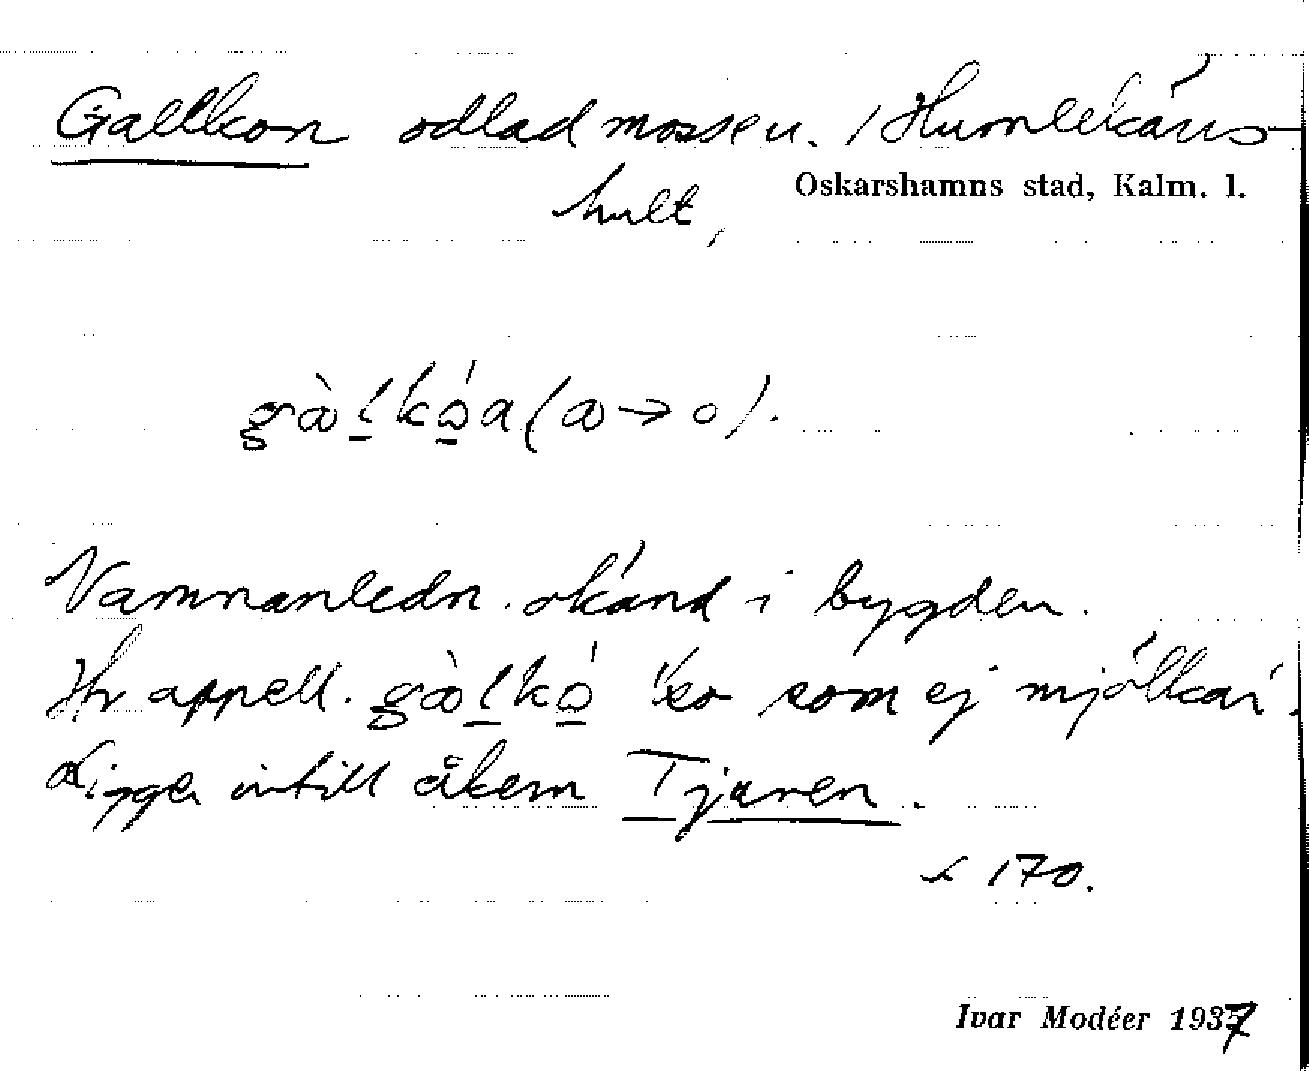 Gallkon odlad mosse u. Humlekärrs-
hult,
Oskarshamns stad, Kalm. l.
Namnanledn. okänd i bygden.
Hr appell. 'ko som ej mjölkar'.
Ligger intill åkern Tjuren.
s 170.
Ivar Modéer 1937